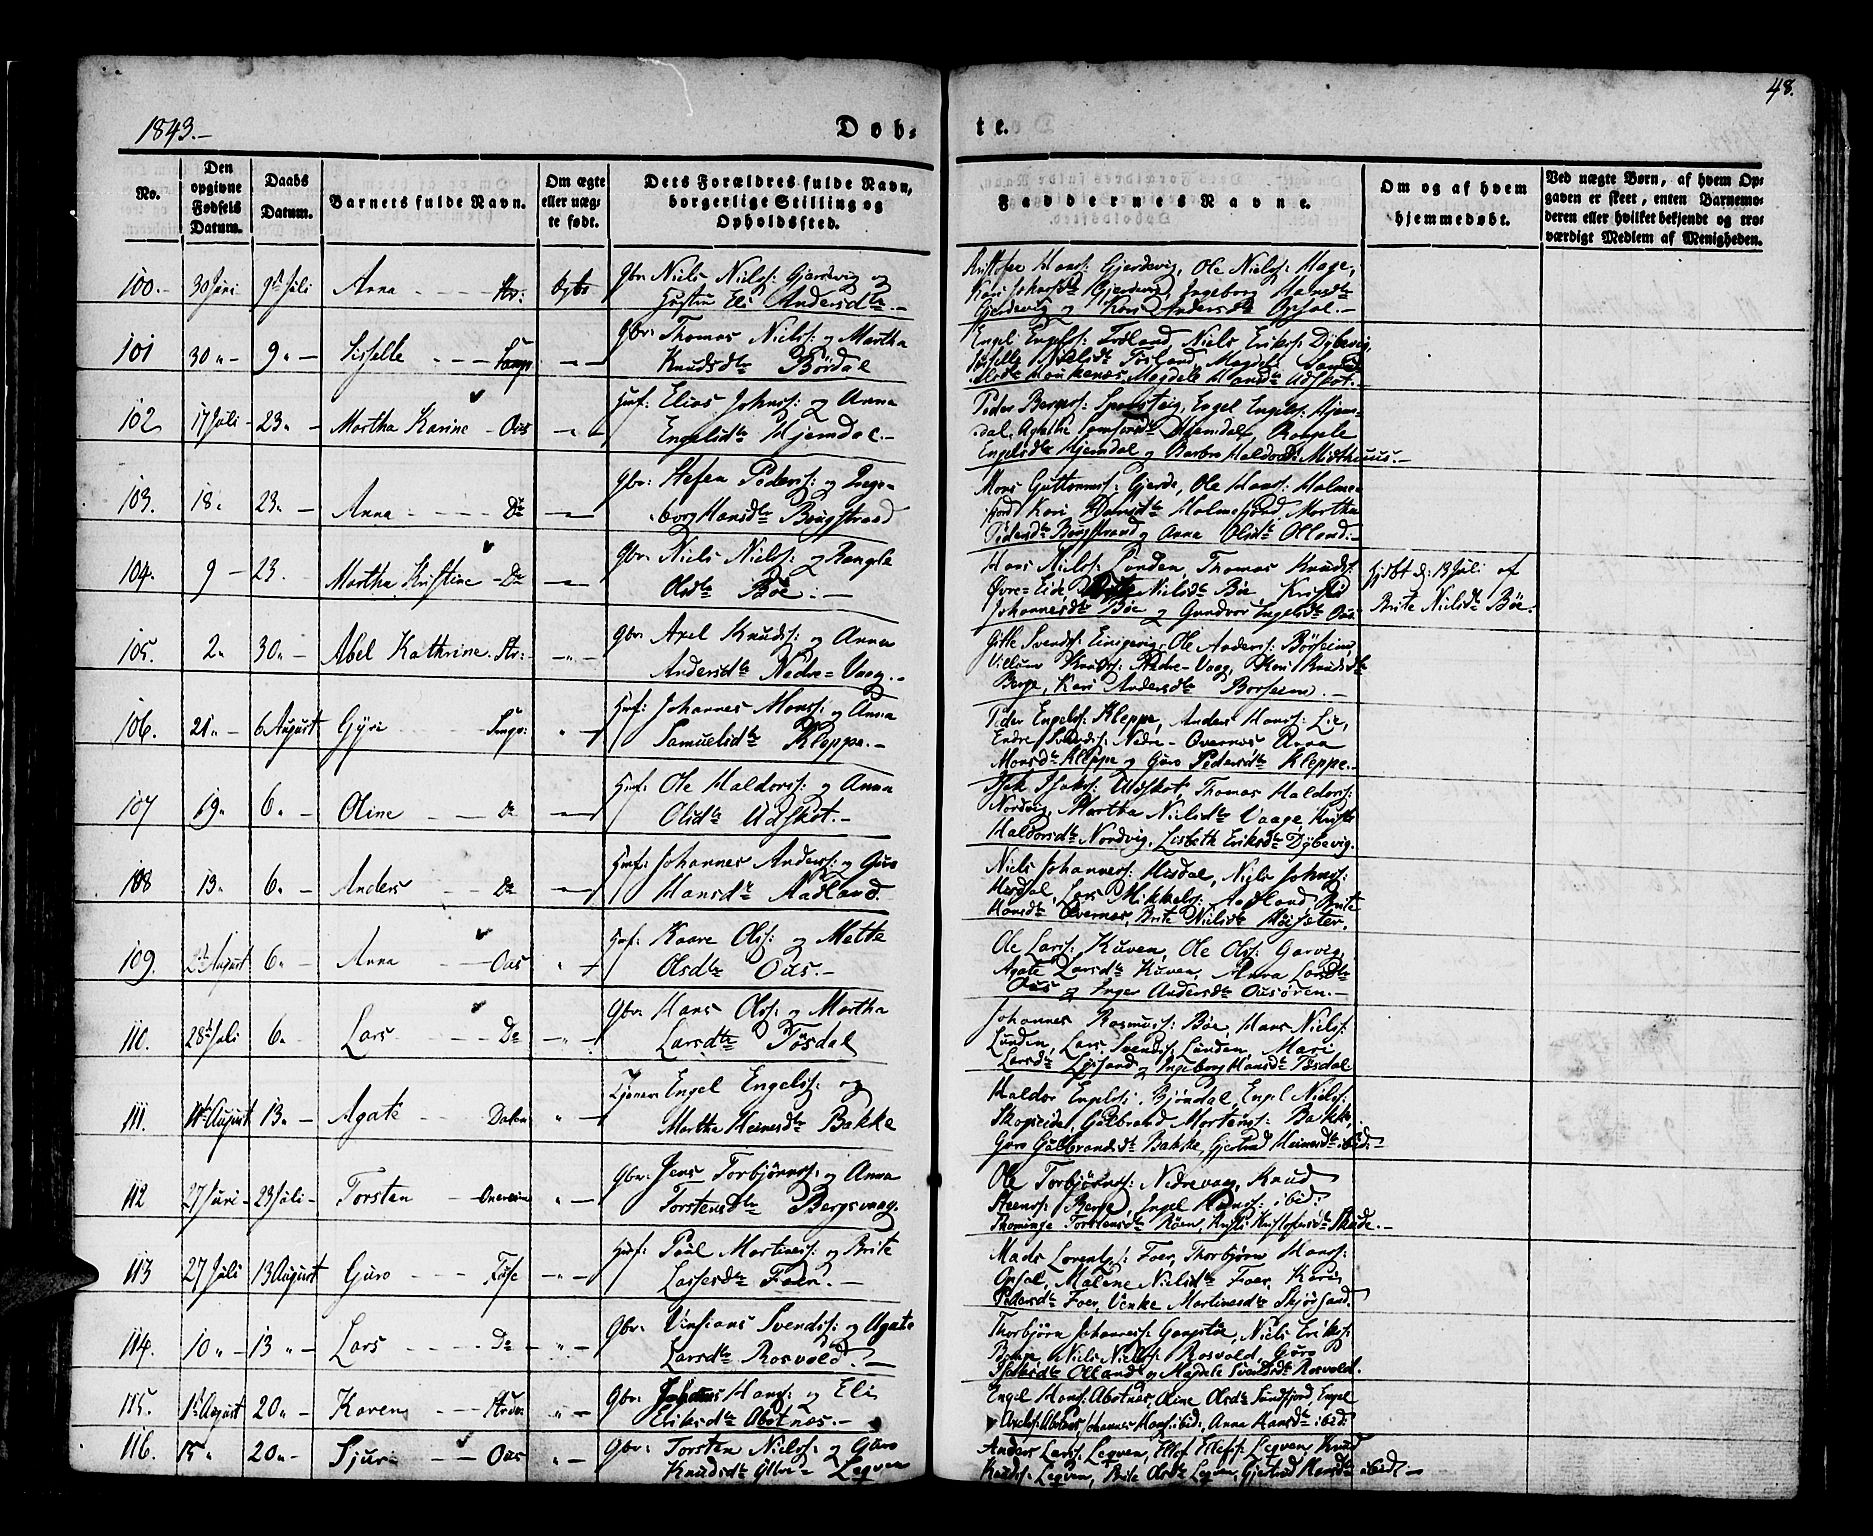 48.
1843.-
Døb-
te.
No.
Den opgivne Fødsels Datum.
Daabs Datum.
Barnets fulde Navn.
Om ægte eller uægte født.
Dets Forældres fulde Navn, borgerlige Stilling og Opholdssted.
Faddernes Navne.
Om og af hvem hjemmedøbt.
Ved uægte Børn, af hvem Opgaven er skeet, enten Barnemoderen eller hvilket bekjendt og troværdigt Medlem af Menigheden.
100.- 30 Juni 9de Juli Anna Str: Ægte Gbr: Niels Niels: Gjerdevig og
Hustru Eli Andersdtr.-
Kristofer Hans: Gjerdevig, Ole Niels: Hage,
Kari Johnsdtr Gjerdevig, Ingeborg Hansdtr
Gjerdevig og Kari Andersdtr Opsal.-
101 30 " - 9 " - Sisselle Gbr: Thomas Niels: og Martha
Knudsdtr Børdal
Engel Engels: Niels Eriks: Dybevig,
Magdele Hansdtr Udskot.
102 17 Juli - 23 " - Martha Karine - Ous Huf: Elias Johns: og Anna
Engelsdtr Hjemdal.-
Peder Bernes: Engel Engels: Hjem-
dal, Hjemdal, Rangele
Engelsdtr Hjemdal og Barbro Haldorsdtr Midthuus.-
103. 18 " 23 " - Anna Do Gbr: Stefen Peders: og Inge-
borg Hansdtr Bougstrand
Mons Guttorms: Gjerde, Ole Hans: Holme-
fjord Kari Holmefjord, Martha
Pedersdtr Bougstrand og Anna Olsdtr Olland.-
104. 9 - 23. Martha Kristine - Do Gbr: Niels Niels: og Rangele
Olsdtr Bøe. -
Hans Niels: Lunden, Thomas Knuds:
Øvre-Eide, Nielsdtr Bøe, Kristi
Johannesdtr Bøe og Gundvor Engelsdtr Ous.
Hjdbt d: 13 Juli af
Brite Nielsdtr Bøe.
105. 2 " 30 " - Abel Kathrine. Str: Gbr: Axel Knuds: og Anna
Andersdtr Nedre-Vaag.-
Gitle Svends: Einigevig, Ole Anders: Børseim,
Villum Knuds: Nedre-Vaag, Kari Knudsdtr
Berge, Kari Andersdtr Borseim. -
106. 21 " - 6 August Gyri Huf: Johannes Mons: og Anna
Samuelsdtr Kleppe.-
Peder Engels: Kleppe, Anders Hans: Lie,
Endre Nedre-Overnes Anna
Monsdtr Kleppe og Guro Pedersdtr Kleppe.-
107 19 " 6 " - Oline Do Huf: Ole Haldors: og Anna
Olsdtr Udskot.-
Isak Isaks: Udskot, Thomas Haldors:
Nordvig, Martha Nielsdtr Vaage,
Haldorsdtr Nordvig, Lisbeth Eriksdtr Dybevig.
108 13 " 6 " - Anders Do Huf: Johannes Anders: og Guro
Hansdtr Aadland.
Niels Johannes: Hisdal, Niels Johns:
Hisdal, Lars Mikkels: Aadland, Brite
Hansdtr Overnes, Brite Nielsdtr Høisæter.
109. August 6 " Anna Ous Huf: Kaare Ols: og Mette
Olsdtr Ous.-
Ole Lars: Kuven, Ole Ols: Garvig,
Agate Larsdtr Kuven, Anna Larsdtr
Ous og Inger Andersdtr Ousøren.-
110. 28 Juli 6 " Lars Do Gbr: Hans Ols: og Martha
Larsdtr Tøsdal
Johannes Rasmus: Bøe, Hans Niels:
Lunden, Lars Svends: Lunden, Mari
Larsdtr og Ingeborg Hansdtr Tøsdal
111. 11te August 13 " - Agate Dalen Engel Engels: og
Martha Heinesdtr Bakke
Haldor Engels: Bjøndal, Engel Niels:
Skogseide, Gulbrand Mortens: Bakke,
Guro Gulbrandsdtr Bakke, Gjertrud Heinesdtr ibid:-
112 27 Juni - 23 Juli - Torsten Gbr: Jens Torbjørns: og Anna
Torstensdtr Bergsvaag.
Ole Torbjørns: Nedrevaag, Knud
Steens: Berge, Ingel Hans: ibid:
Thominge Torstensdtr Røen, Kristi Kristofersdtr Skude.-
113 27 Juli 13 August Guro Fuse Huf: Poul Martines: og Brite
Lassesdtr Foer.-
Mads Lorents: Foer, Thorbjørn Hans:
Opsal, Malene Nielsdtr Foer, Kari
Pedersdtr Foer, Venke Martinesdtr Skjørsand.
114. 10 " - 13 " - Lars Do Gbr: Vinsians Svends: og Agate
Larsdtr Rosvold. -
Thorbjørn Johannes: Gangstøe, Niels Eriks:
Berge, Niels Niels: Rosvold, Guro
Isaksdtr Olland og Magdele Svendsdtr Rosvold.
115. August 20 " - Karen Gbr: Johans Hans: og Eli
Eriksdtr Abotnes.-
Engel Hans: Abotnes, Oline Olsdtr Sundfjord, Engel
Axels: Abotnes, Johannes Hans: ibid:, Anna Hansdtr ibid:
116. 15 " 20 " - Sjur Ous Gbr: Torsten Niels: og Guro
Knudsdtr Yttre- Leqven
Anders Lars: Leqven, Ellef Ellefs: Leqven, Knud
Knuds: Leqven, Brite Olsdtr Leqven, Gjertrud Hansdtr ibid: -